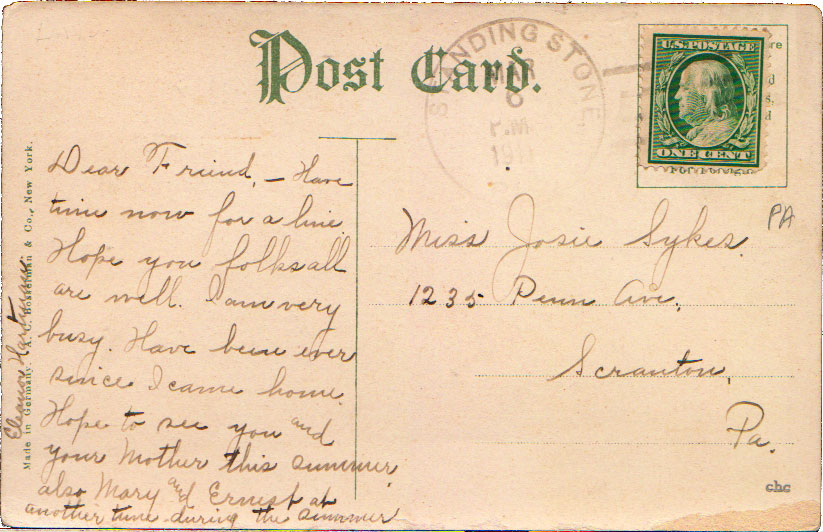 Post Card.
STANDING STONE,
MAR
6
P.M.
191
U.S. POSTAGE
ONE CENT
PA
Dear Friend, – Have
time now for a line.
Hope you folks all
are well. I am very
busy. Have been ever
since I came home.
Hope to see you and
your Mother this summer
also Mary and Ernest at
another time during the summer
Eleanor
Made in Germany. A. C. Bosselman & Co., New York.
Miss Josie Sykes.
1235 Penn Ave.
Scranton,
Pa.
chc